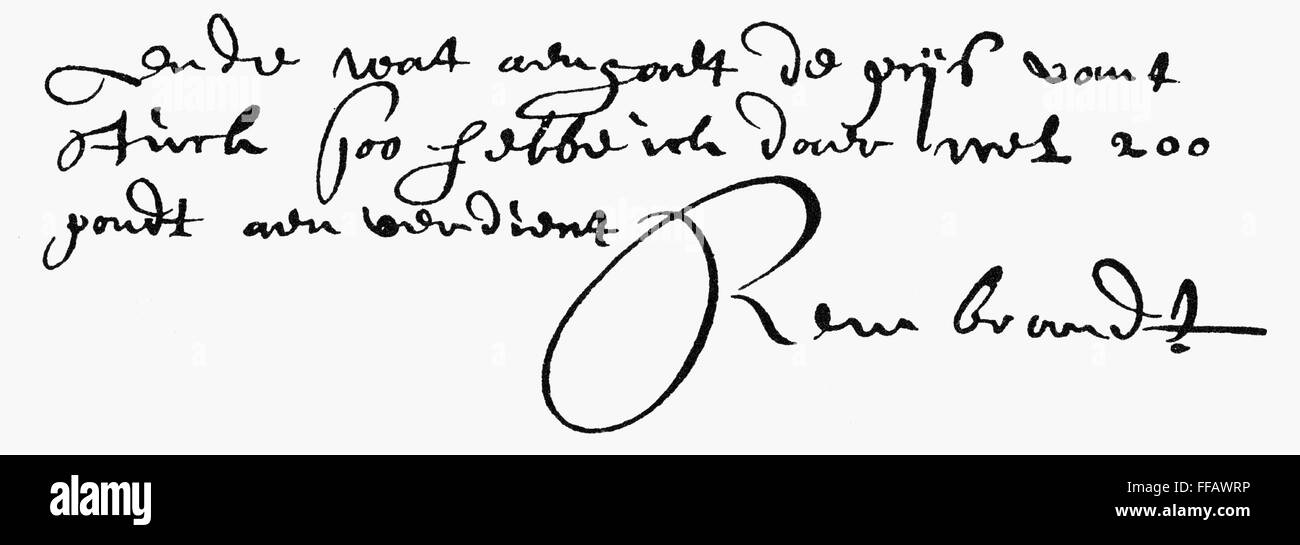 ende wat aengaet de prijs vant
stuck soo hebbe ick daer wel 200
pondt aen verdient
Rembrandt
alamy stock photo
FFAWRP
www.alamy.com